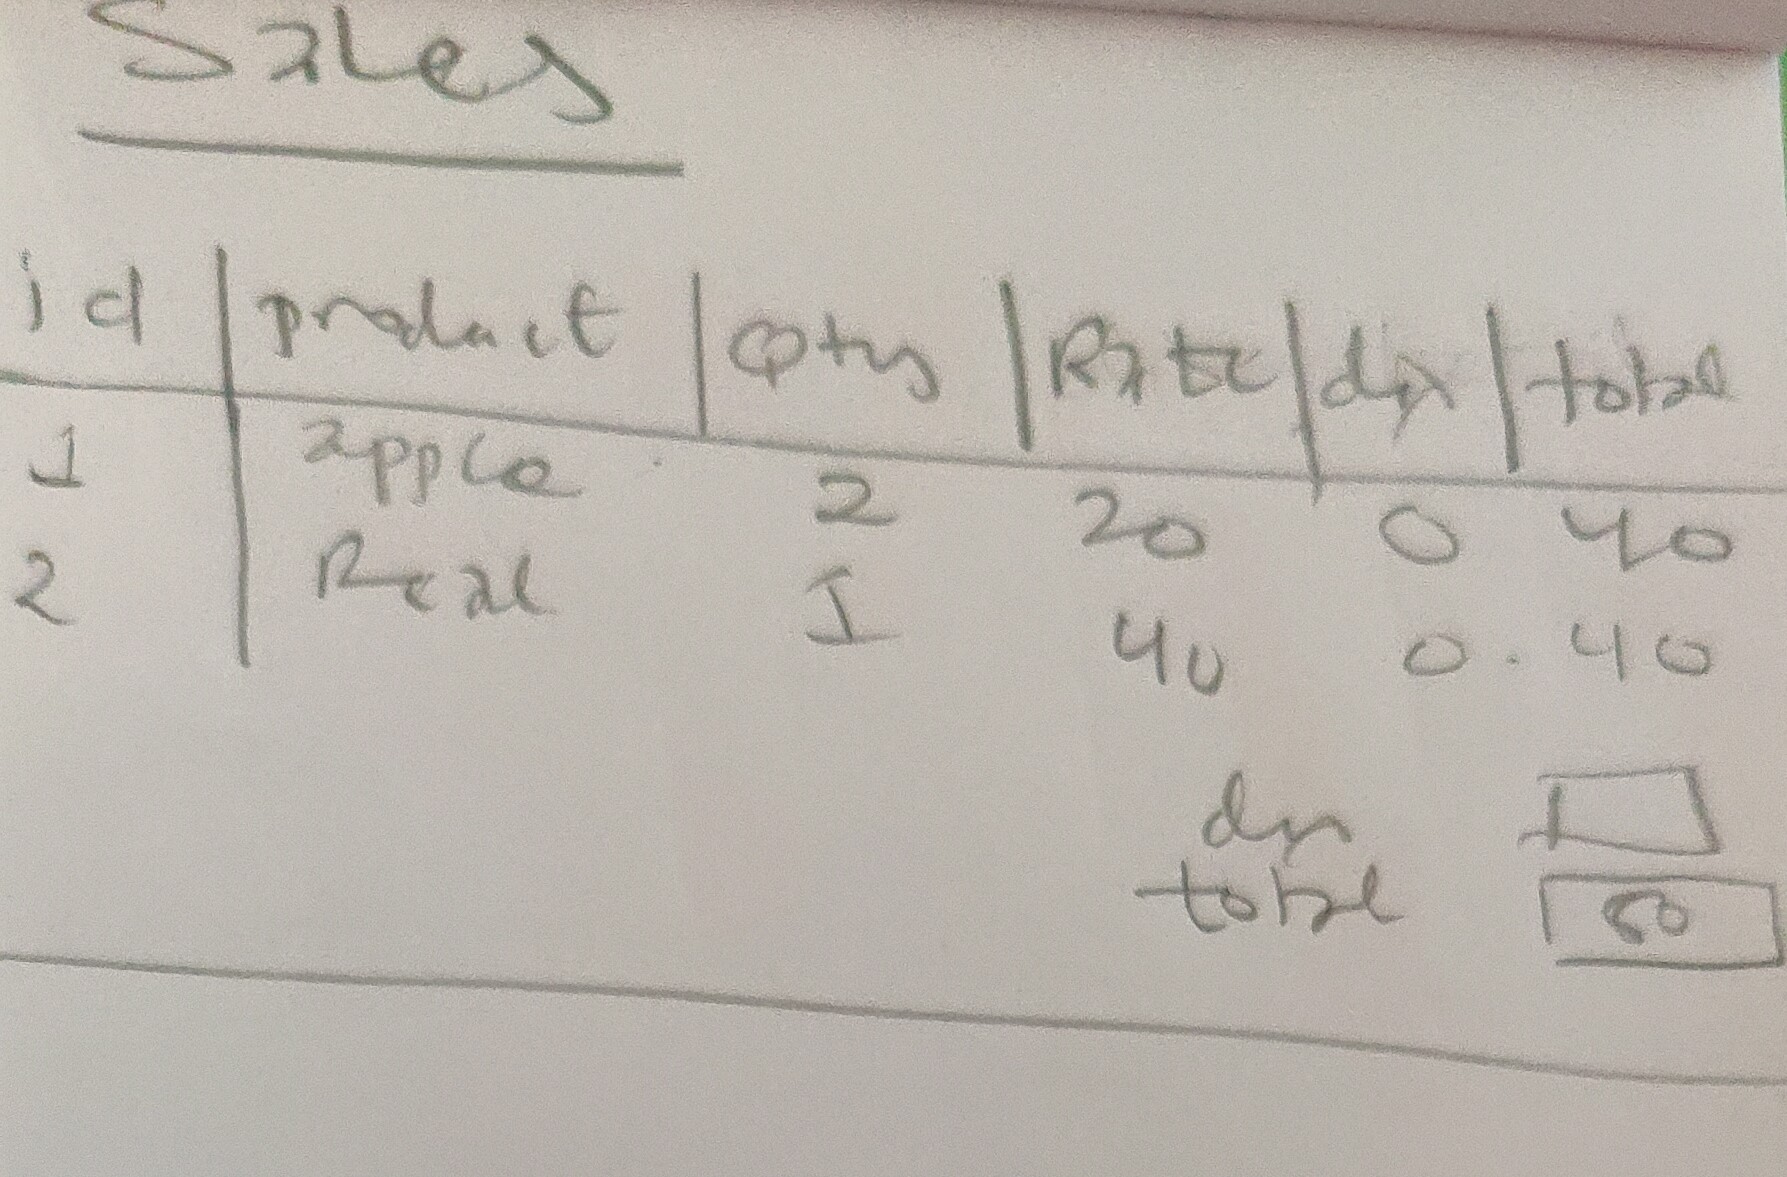 Sales
id product Qty Rate dis total
1 apple 2 20 0 40
2 Real 1 40 0 40
dis
total 80